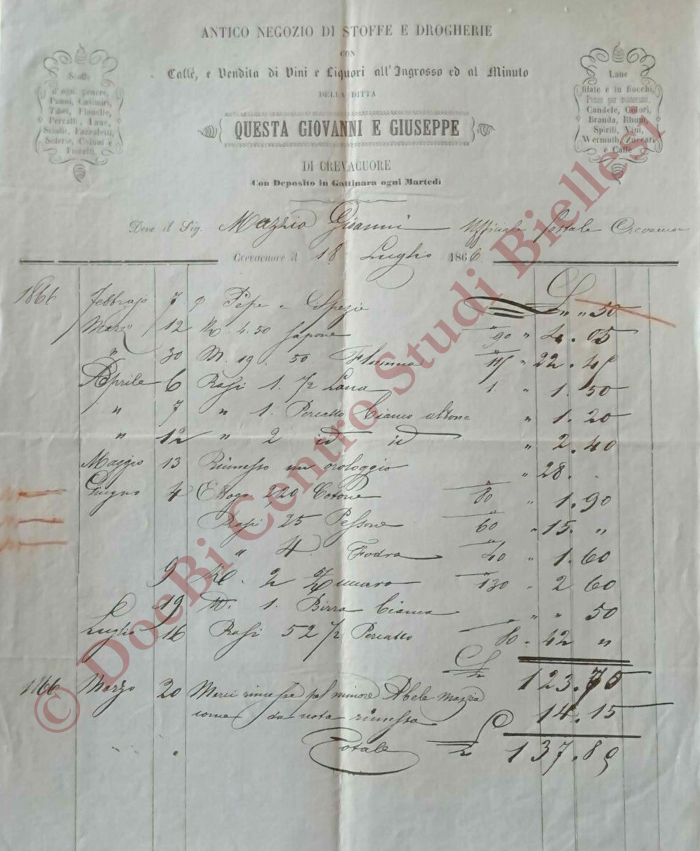 ANTICO NEGOZIO DI STOFFE E DROGHERIE
CON
Caffè, e Vendita di Vini e Liquori all'Ingrosso ed al Minuto
DELLA DITTA
QUESTA GIOVANNI E GIUSEPPE
DI CREVACUORE
Con Deposito in Gattinara ogni Martedì
Stoffe
d'ogni genere,
Panni, Cotinine,
Tibet, Flanelle,
Percalli, Lane,
Scialli, Fazzoletti,
Seterie, Cotoni e
Lane
filate e in fiocchi,
Penne per materassi,
Candele, Odori,
Branda, Rhum,
Spiriti, Vini,
Wermuth, Zuccari
e Caffè
Deve il Sig. Mazzio Gianni Ufficiale Postale Crevacuore
Crevacuore il 18 Luglio 1866
1866 Febbrajo 7 Pepe e Spezie " " 50
Marzo 12 K 4.50 Sapone 90 " 4.05
" 30 M. 19.50 115 " 22.45
Aprile 6 Rasi 1 1/2 Lana 1 " 1.50
" 7 " 1. Percallo bianco " 1.20
" 12 " 2 id id " 2.40
Maggio 13 Rimesso un orologgio " 28.
Giugno 4 220 Cotone " 1.90
Rasi 25 Pessone 60 " 15. "
" 4 Fodra 40 " 1.60
9 K. 2 Zuccaro 130 - 2 60
19 1. Birra bianca " " 50
Luglio 16 Rasi 52 1/2 Percallo 80 - 42 "
123.75
1866 Marzo 20 Merci rimesse pel minore Abele Mazzia
come da nota rimessa 14.15
Totale 137.89
© DocBi Centro Studi Biellesi